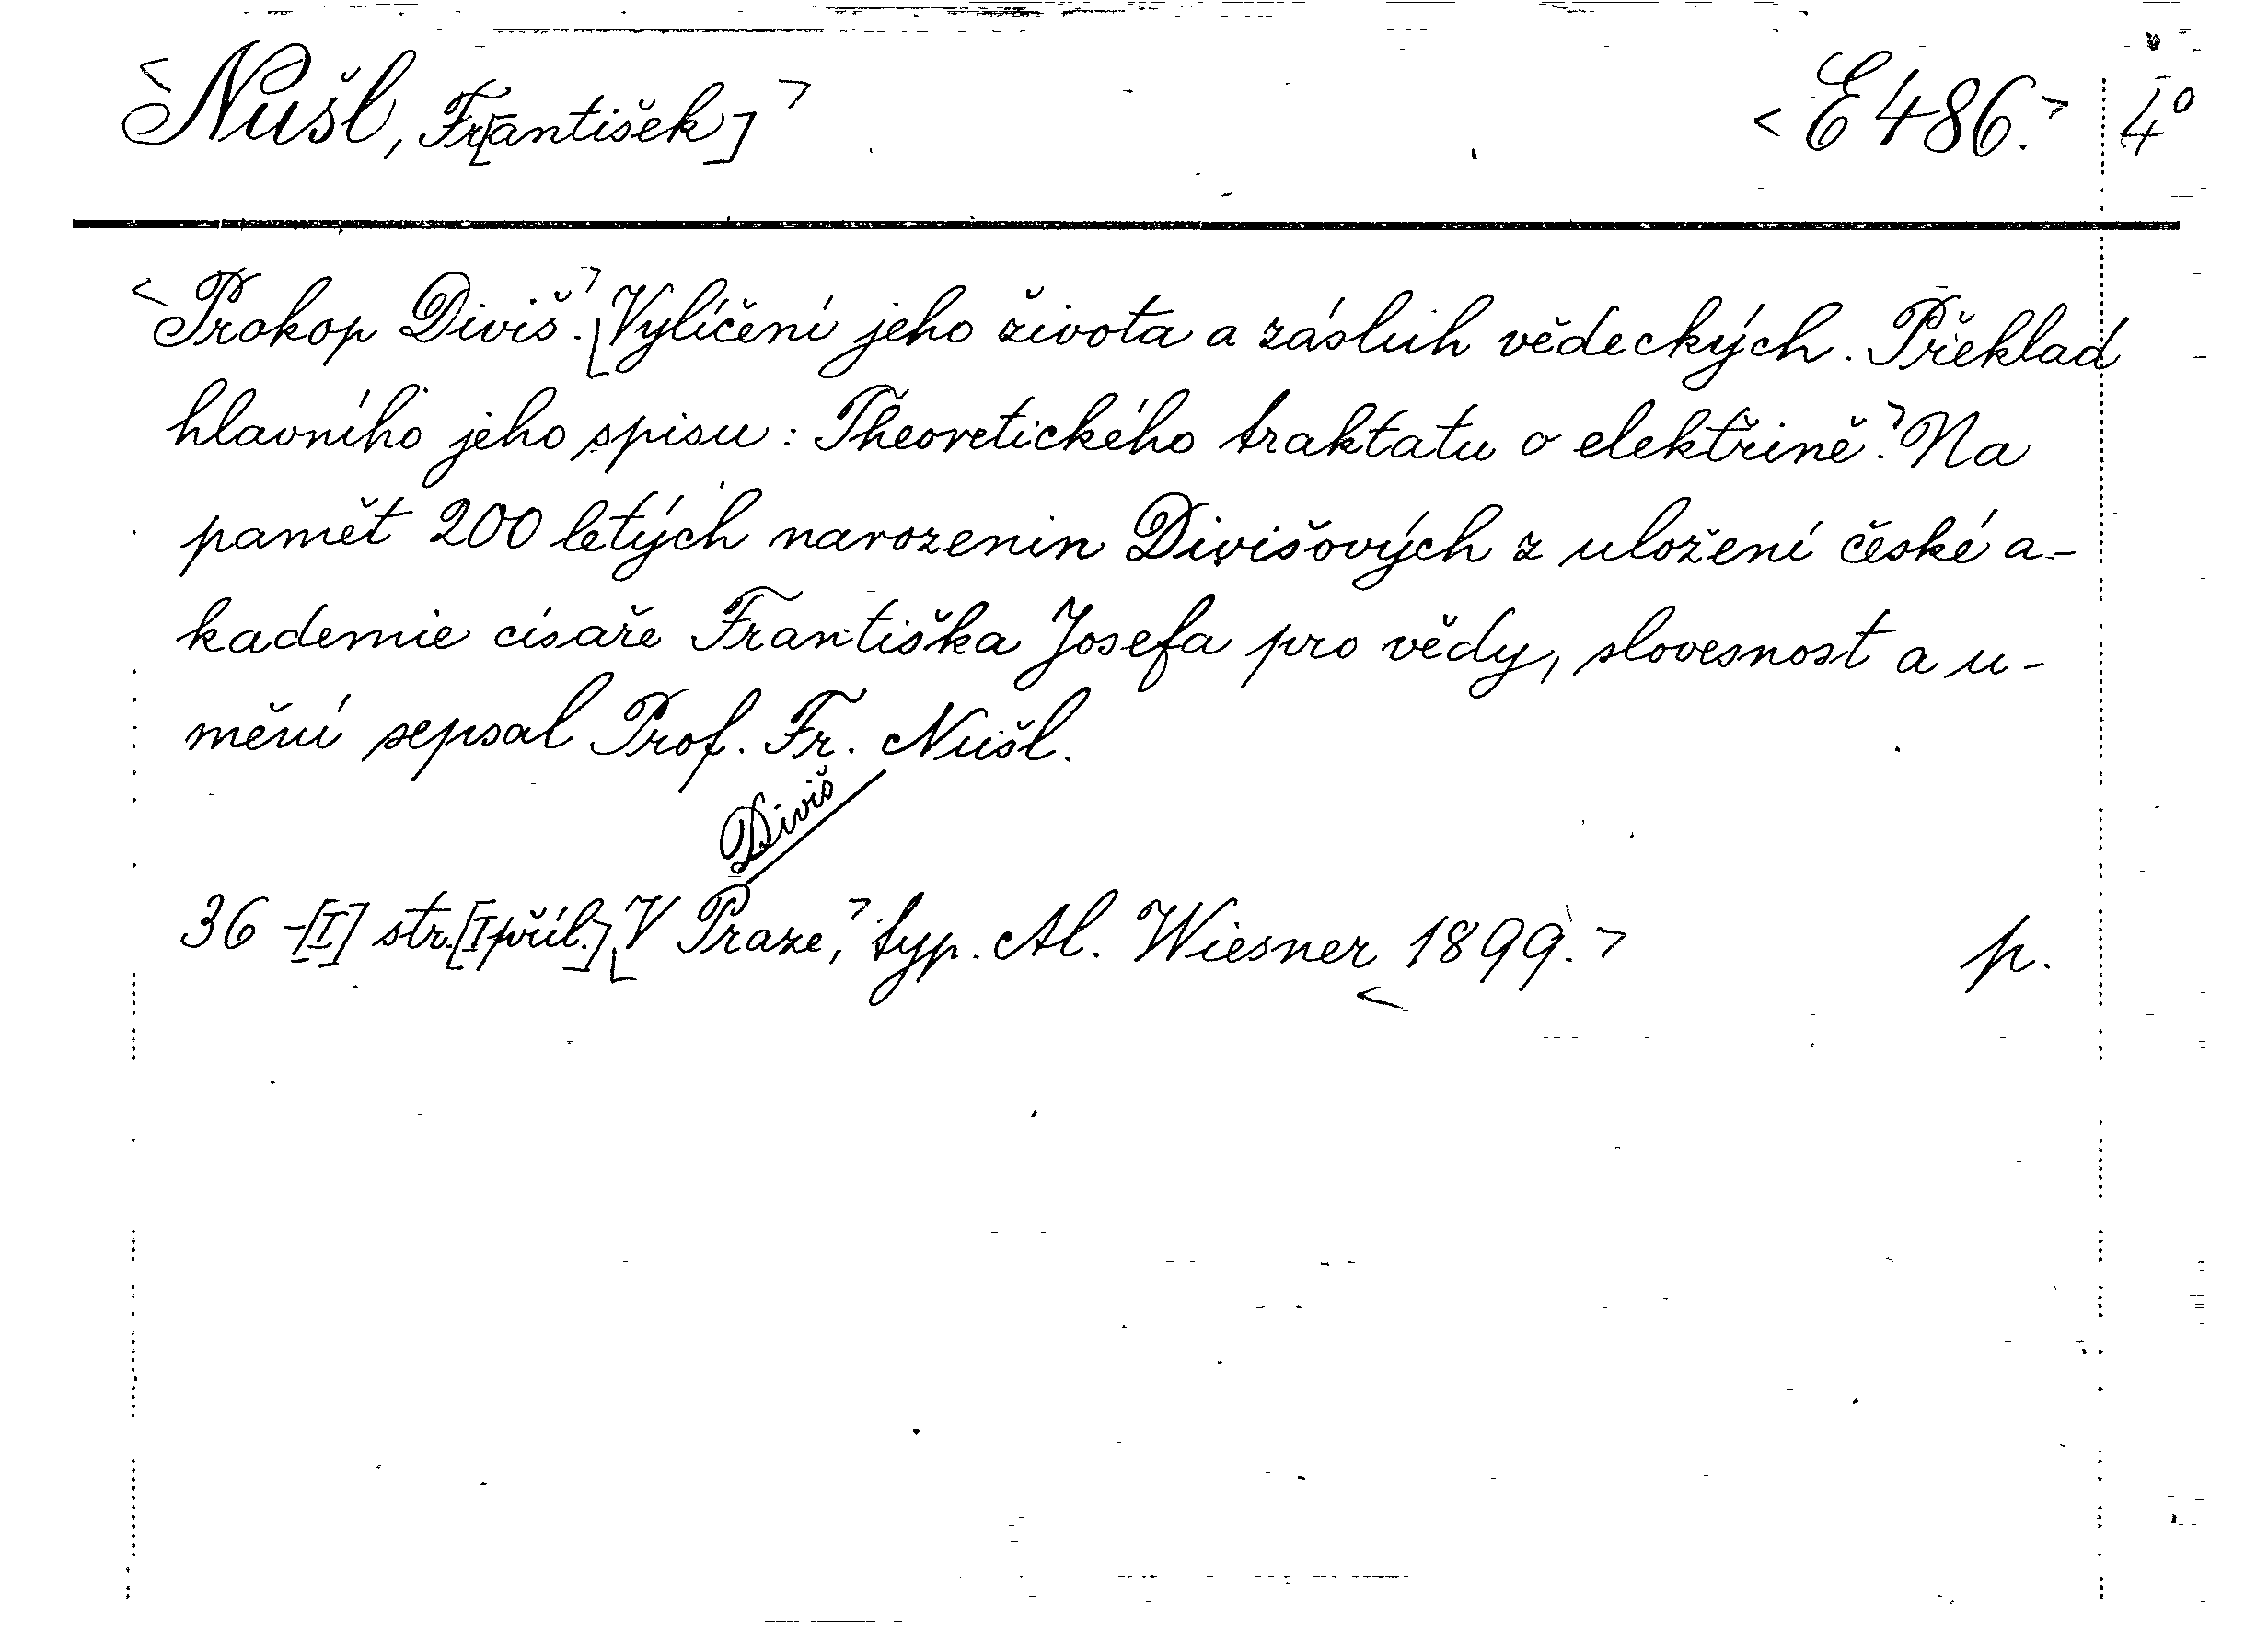 <Nušl, Fr[antišek]> <E 486.> 4°
<Prokop Diviš.> [Vylíčení jeho života a zásluh vědeckých. Překlad
hlavního jeho spisu: Theoretického traktatu o elektřině.> Na
pamět 200 letých narozenin Divišových z uložení české a-
kademie císaře Františka Josefa pro vědy, slovesnost a u-
mění sepsal Prof. Fr. Nušl.
Diviš
36 -[I] str.[I příl.] [V Praze,> typ. Al. Wiesner <1899.> p.